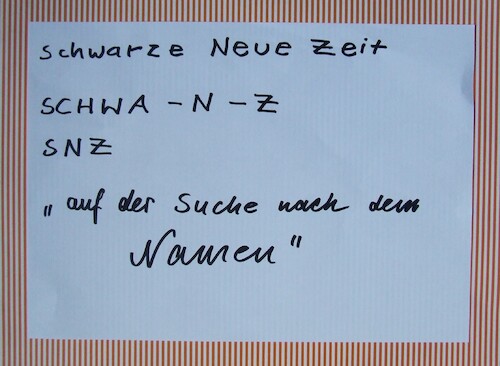 schwarze Neue Zeit
SCHWA - N - Z
SNZ
„auf der Suche nach dem
Namen"